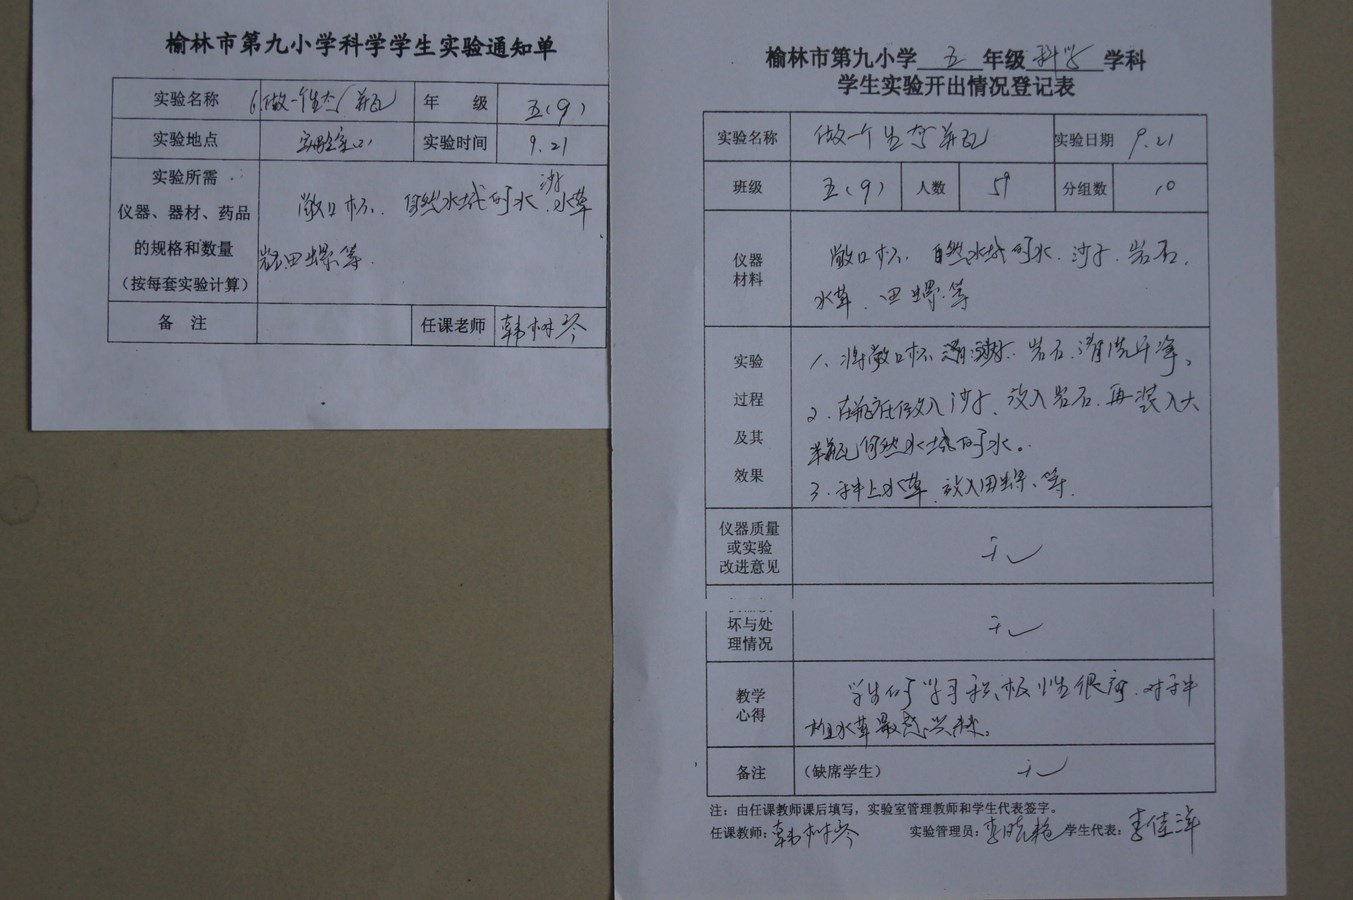 榆林市第九小学科学学生实验通知单
实验名称 6.做一个生态瓶 年 级 五(9)
实验地点 实验室(2) 实验时间 9.21
实验所需
仪器、器材、药品
的规格和数量
（按每套实验计算）
敞口杯. 自然水域的水.沙子.水草
岩石田螺等.
备 注 任课老师 韩树琴
榆林市第九小学 五 年级 科学 学科
学生实验开出情况登记表
实验名称 做一个生态瓶 实验日期 9.21
班级 五(9) 人数 59 分组数 10
仪器
材料
敞口杯. 自然水域的水.沙子.岩石.
水草.田螺等
实验
过程
及其
效果
1、将敞口杯 沙子.岩石.清洗干净。
2.在瓶底放入沙子、放入岩石.再装入大
半瓶自然水域的水。
3.种上水草.放入田螺、等.
仪器质量
或实验
改进意见
无
坏与处
理情况
无
教学
心得
学生的学习积极性很高.对种
植水草最感兴趣。
备注 （缺席学生） 无
注：由任课教师课后填写，实验室管理教师和学生代表签字。
任课教师：韩树琴 实验管理员：李晓艳 学生代表：李佳洋